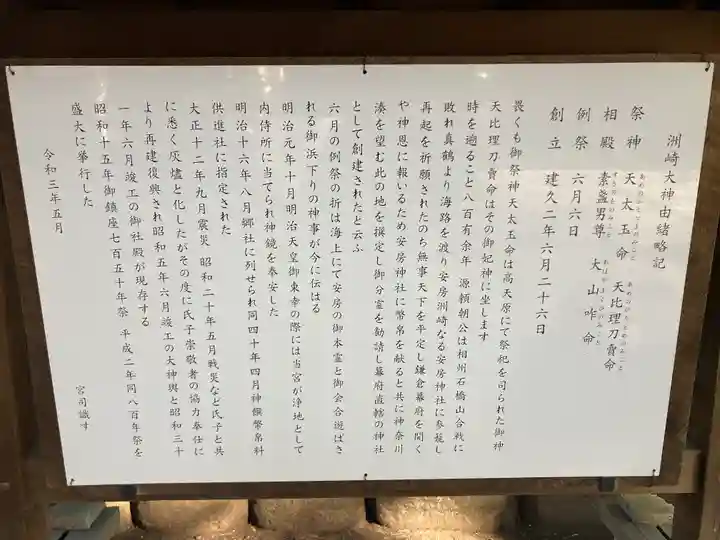 洲崎大神由緒略記
祭神 天太玉命 天比理刀賣命
相殿 素盞男尊 大山咋命
例祭 六月六日
創立 建久二年六月二十六日
畏くも御祭神天太玉命は高天原にて祭祀を司られた御神
天比理刀賣命はその御妃神に坐します
時を遡ること八百有余年 源頼朝公は相州石橋山合戦に
敗れ真鶴より海路を渡り安房洲崎なる安房神社に参篭し
再起を祈願されたのち無事天下を平定し鎌倉幕府を開く
や神恩に報いるため安房神社に幣帛を献ると共に神奈川
湊を望む此の地を撰定し御分霊を勧請し幕府直轄の神社
として創建されたと云ふ
六月の例祭の折は海上にて安房の御本霊と御会合遊ばさ
れる御浜下りの神事が今に伝はる
明治元年十月明治天皇御東幸の際には当宮が浄地として
内侍所に当てられ神鏡を奉安した
明治十六年八月郷社に列せられ同四十年四月神饌幣帛料
供進社に指定された
大正十二年九月震災 昭和二十年五月戦災など氏子と共
に悉く灰燼と化したがその度に氏子崇敬者の協力奉仕に
より再建復興され昭和五年六月竣工の大神輿と昭和三十
一年六月竣工の御社殿が現存する
昭和十五年御鎮座七百五十年祭 平成二年同八百年祭を
盛大に挙行した
令和三年五月
宮司識す